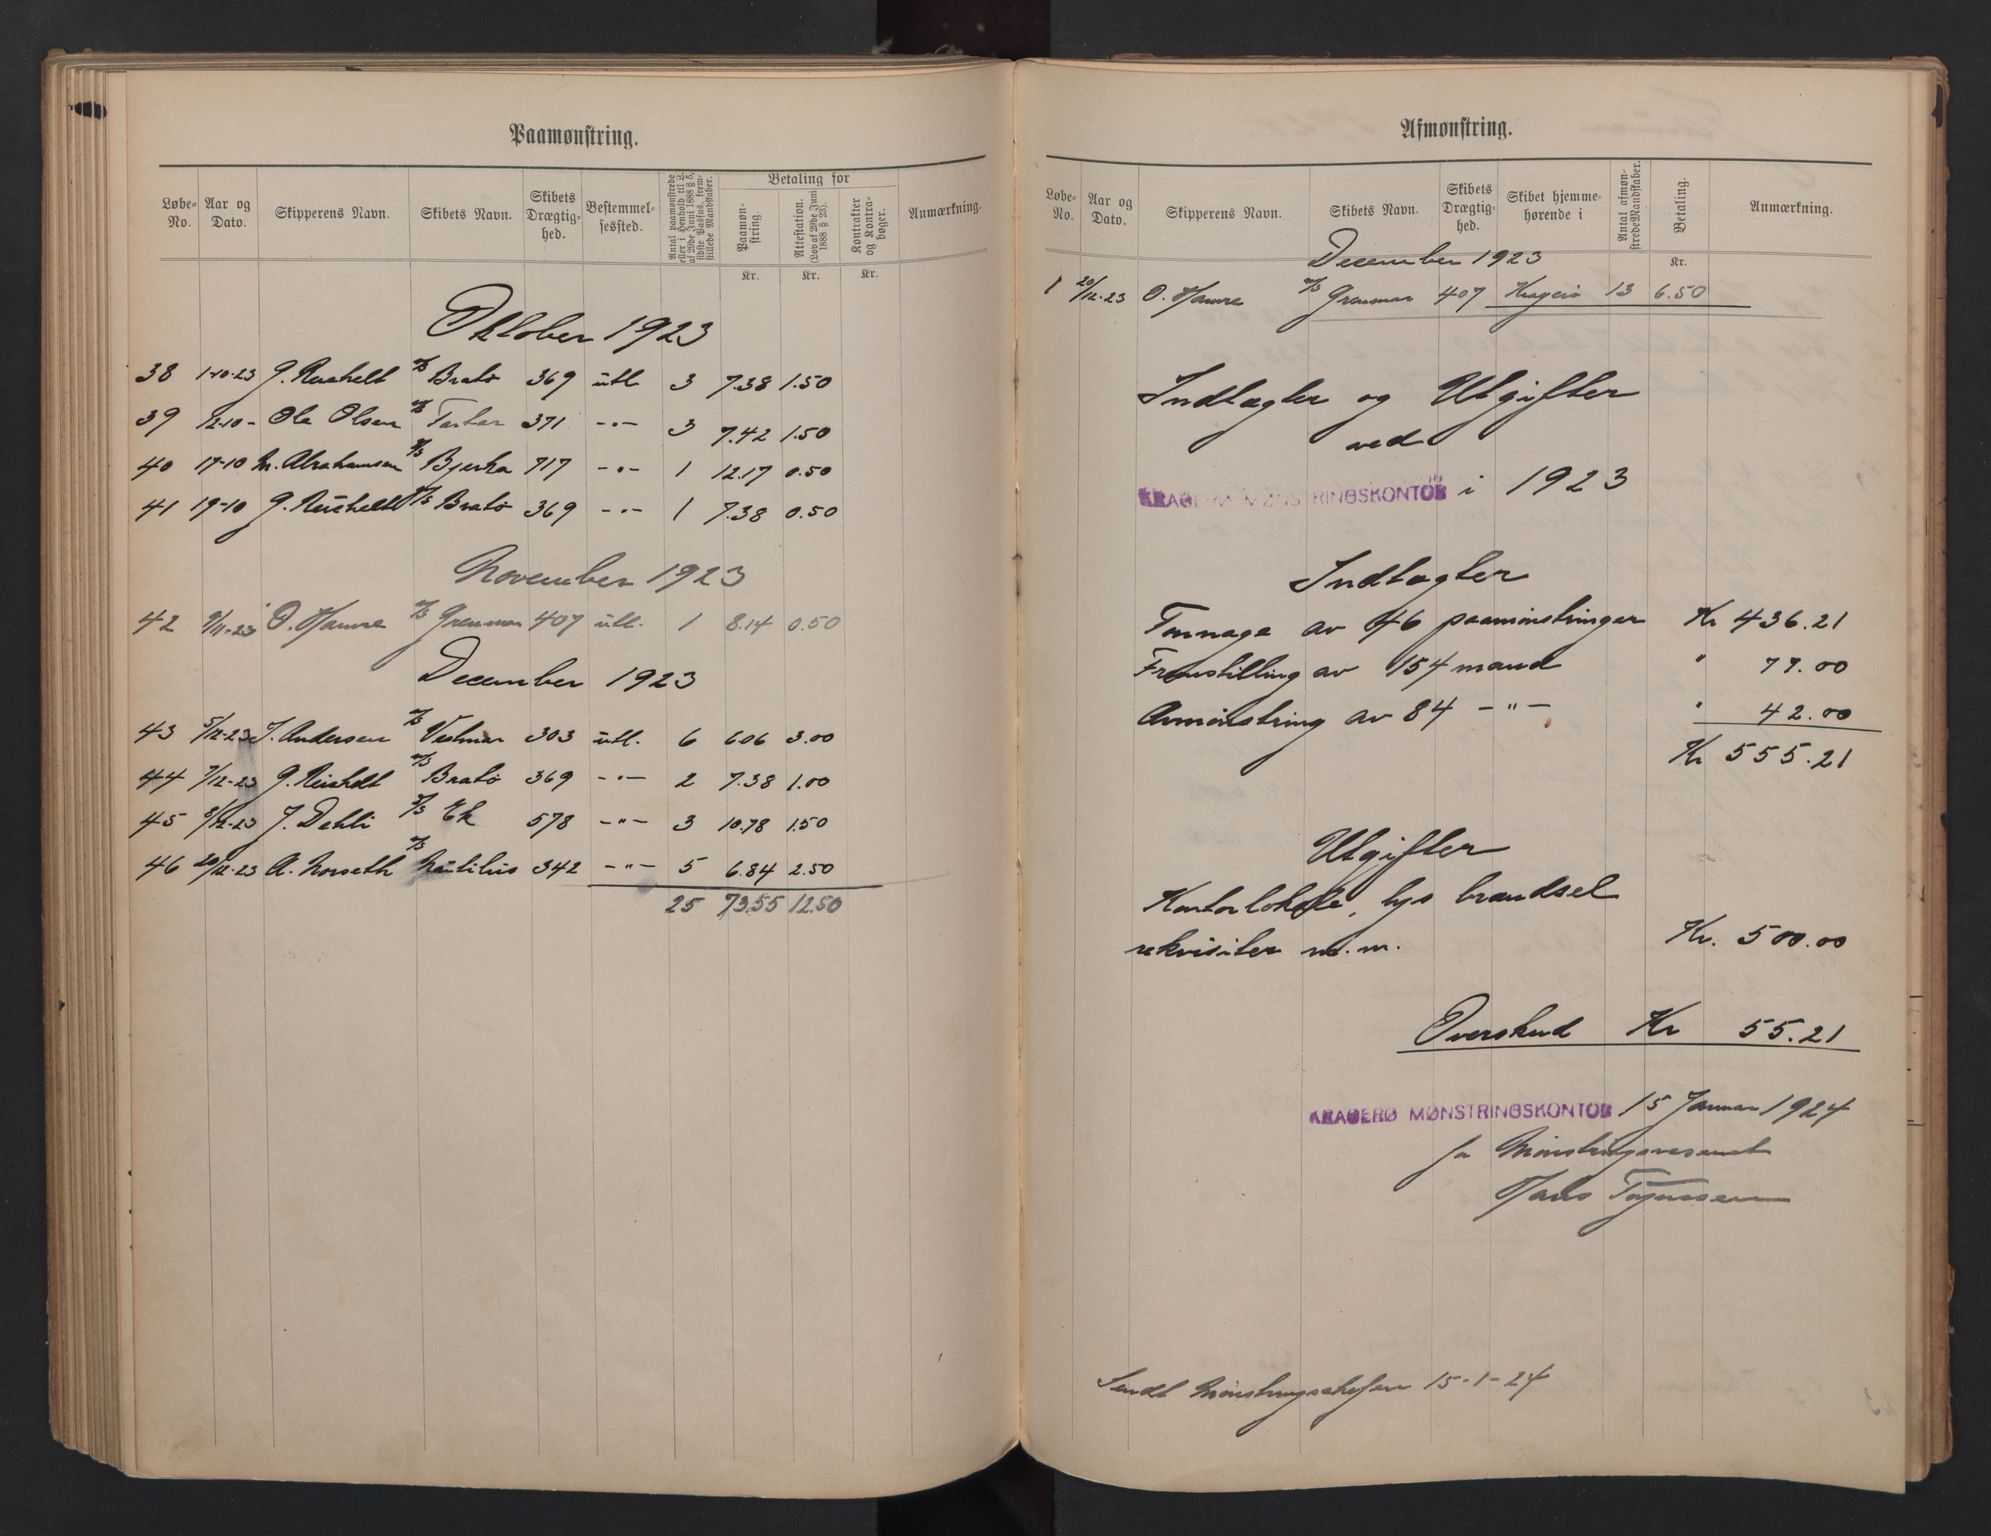 Paamønstring.
Løbe-No. Aar og Dato. Skipperens Navn. Skibets Navn. Skibets Drægtig-hed. Bestemmel-sessted. Antal paamønstrede eller i Henhold til L. af 29de Juni 1888 § 5, sidste Passus, frem-stillede Mandskaber. Betaling for Anmærkning.
Paamøn-string. Attestation. (Lov af 29de Juni 1888 § 23). Kontrakter og Kontra-bøger.
Kr. Kr. Kr.
Oktober 1923
38 1-10-23 G. Reichelt M/S Bratø 369 utl. 3 7.38 1.50
39 12-10- Ole Olsen M/S Tartar 371 -"- 3 7.42 1.50
40 17-10 M. Abrahamsen S/S Bjerka 717 -"- 1 12.17 0.50
41 19-10 G. Reichelt M/S Bratø 369 -"- 1 7.38 0.50
November 1923
42 9/11-23 O. Hamre M/S Grenmar 407 utl. 1 8.14 0.50
December 1923
43 5/12-23 J. Andersen M/S Vestmar 303 utl. 6 6.06 3.00
44 7/12-23 G. Reichelt M/S Bratø 369 -"- 2 7.38 1.00
45 8/12-23 J. Dehli S/S Ek 578 -"- 3 10.78 1.50
46 20/12-23 A. Norseth M/S Nautilus 342 -"- 5 6.84 2.50
25 73.55 12.50
Afmønstring.
Løbe-No. Aar og Dato. Skipperens Navn. Skibets Navn. Skibets Drægtig-hed. Skibet hjemme-hørende i Antal afmøn-strede Mandskaber. Betaling. Anmærkning.
Kr.
December 1923
1 20/12-23 O. Hamre M/S Grenmar 407 Kragerø 13 6.50
Indtægter og Utgifter
ved
KRAGERØ MØNSTRINGSKONTOR i 1923
Indtægter
Tonnage av 46 paamønstringer Kr 436.21
Fremstilling av 154 mand " 77.00
Avmønstring av 84 -"- " 42.00
Kr 555.21
Utgifter
Kontorlokale, lys brændsel
rekvisiter m.m. Kr. 500.00
Overskud Kr 55.21
KRAGERØ MØNSTRINGSKONTOR 15 Januar 1924
for Mønstringsvæsenet
Hans
Sendt Mønstringschefen 15-1-24